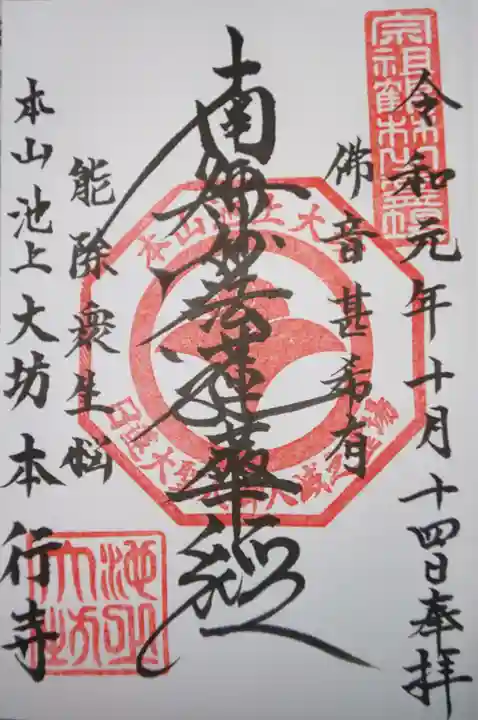 令和元年十月十四日奉拝
佛音甚希有
南無妙法蓮華經
能除衆生惱
本山池上大坊本行寺
宗祖鶴林霊跡
本山池上大
日蓮大聖人
池上
大坊